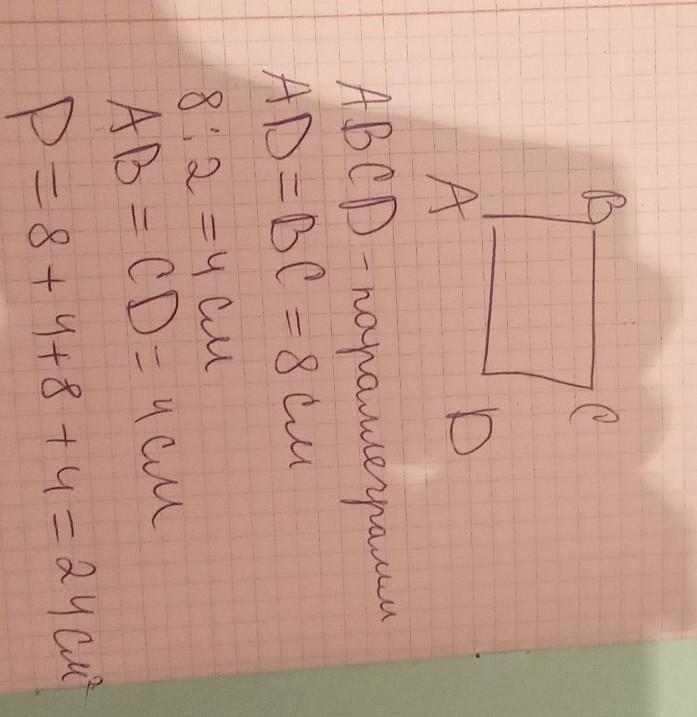 B C
A D
ABCD - параллеграмм
AD = BC = 8 см
8 : 2 = 4 см
AB = CD = 4 см
P = 8 + 4 + 8 + 4 = 24 см²